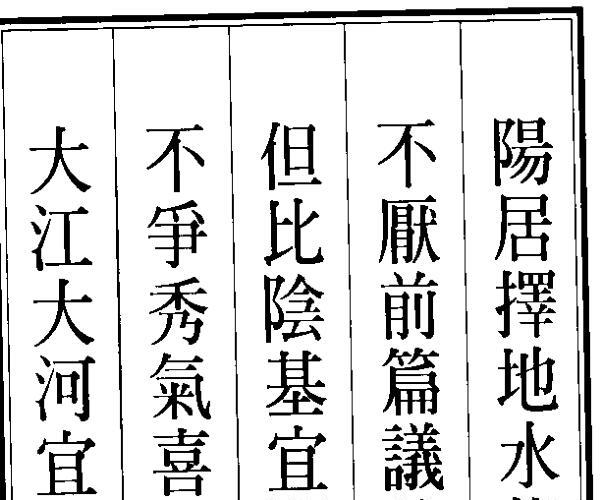 陽居擇地水
不厭前篇議
但比陰基宜
不爭秀氣喜
大江大河宜